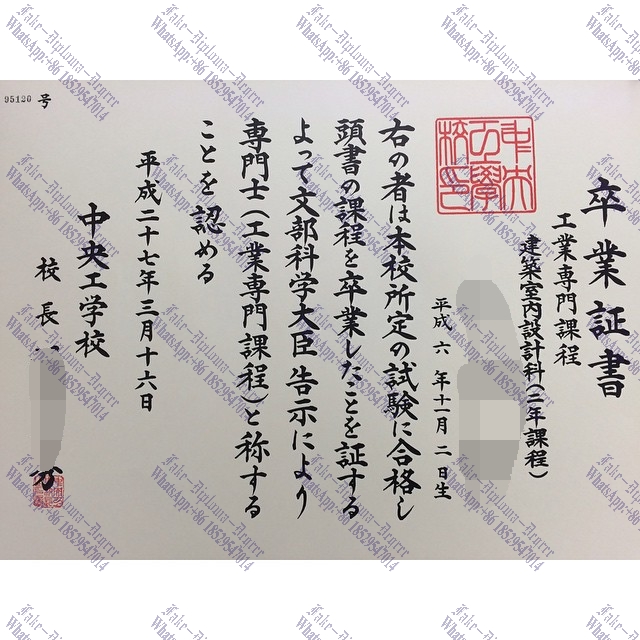 卒業証書
工業専門課程
建築室内設計科(二年課程)
平成 六 年十一月 二 日生
右の者は本校所定の試験に合格し
頭書の課程を卒業したことを証する
よって文部科学大臣告示により
専門士(工業専門課程)と称する
ことを認める
平成二十七年三月十六日
中央工学校
校長
95120 号
Fake-Diploma-Degree
WhatsApp:+86 18529547014